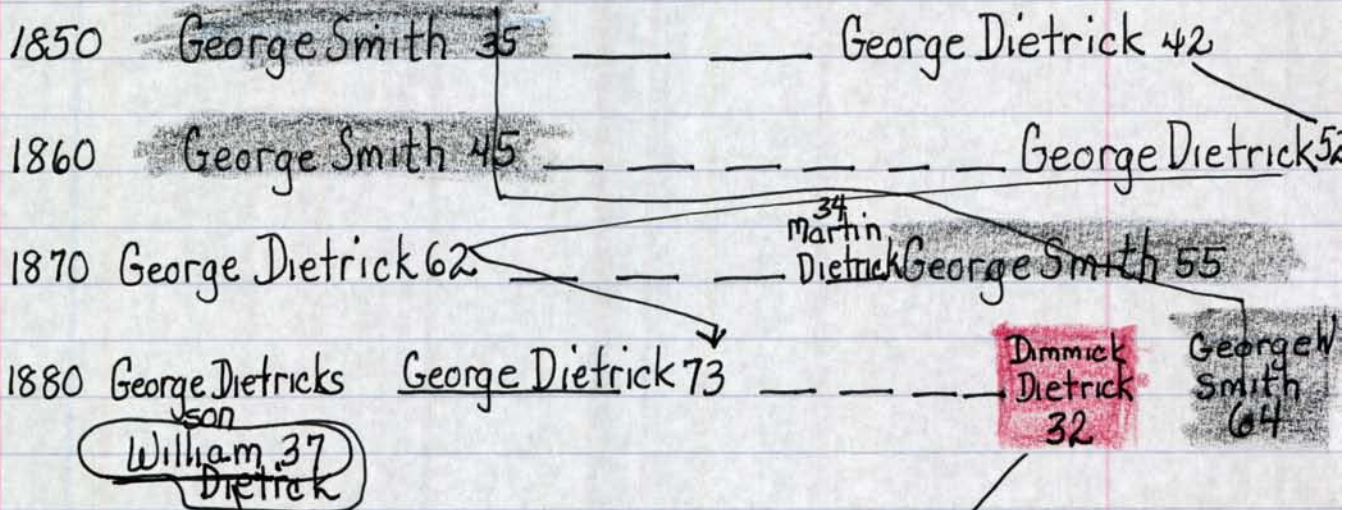 1850 George Smith 35 George Dietrick 42
1860 George Smith 45 George Dietrick 52
1870 George Dietrick 62 34 Martin Dietrick George Smith 55
1880 George Dietricks son William 37 Dietrick George Dietrick 73 Dimmick Dietrick 32 George W Smith 64